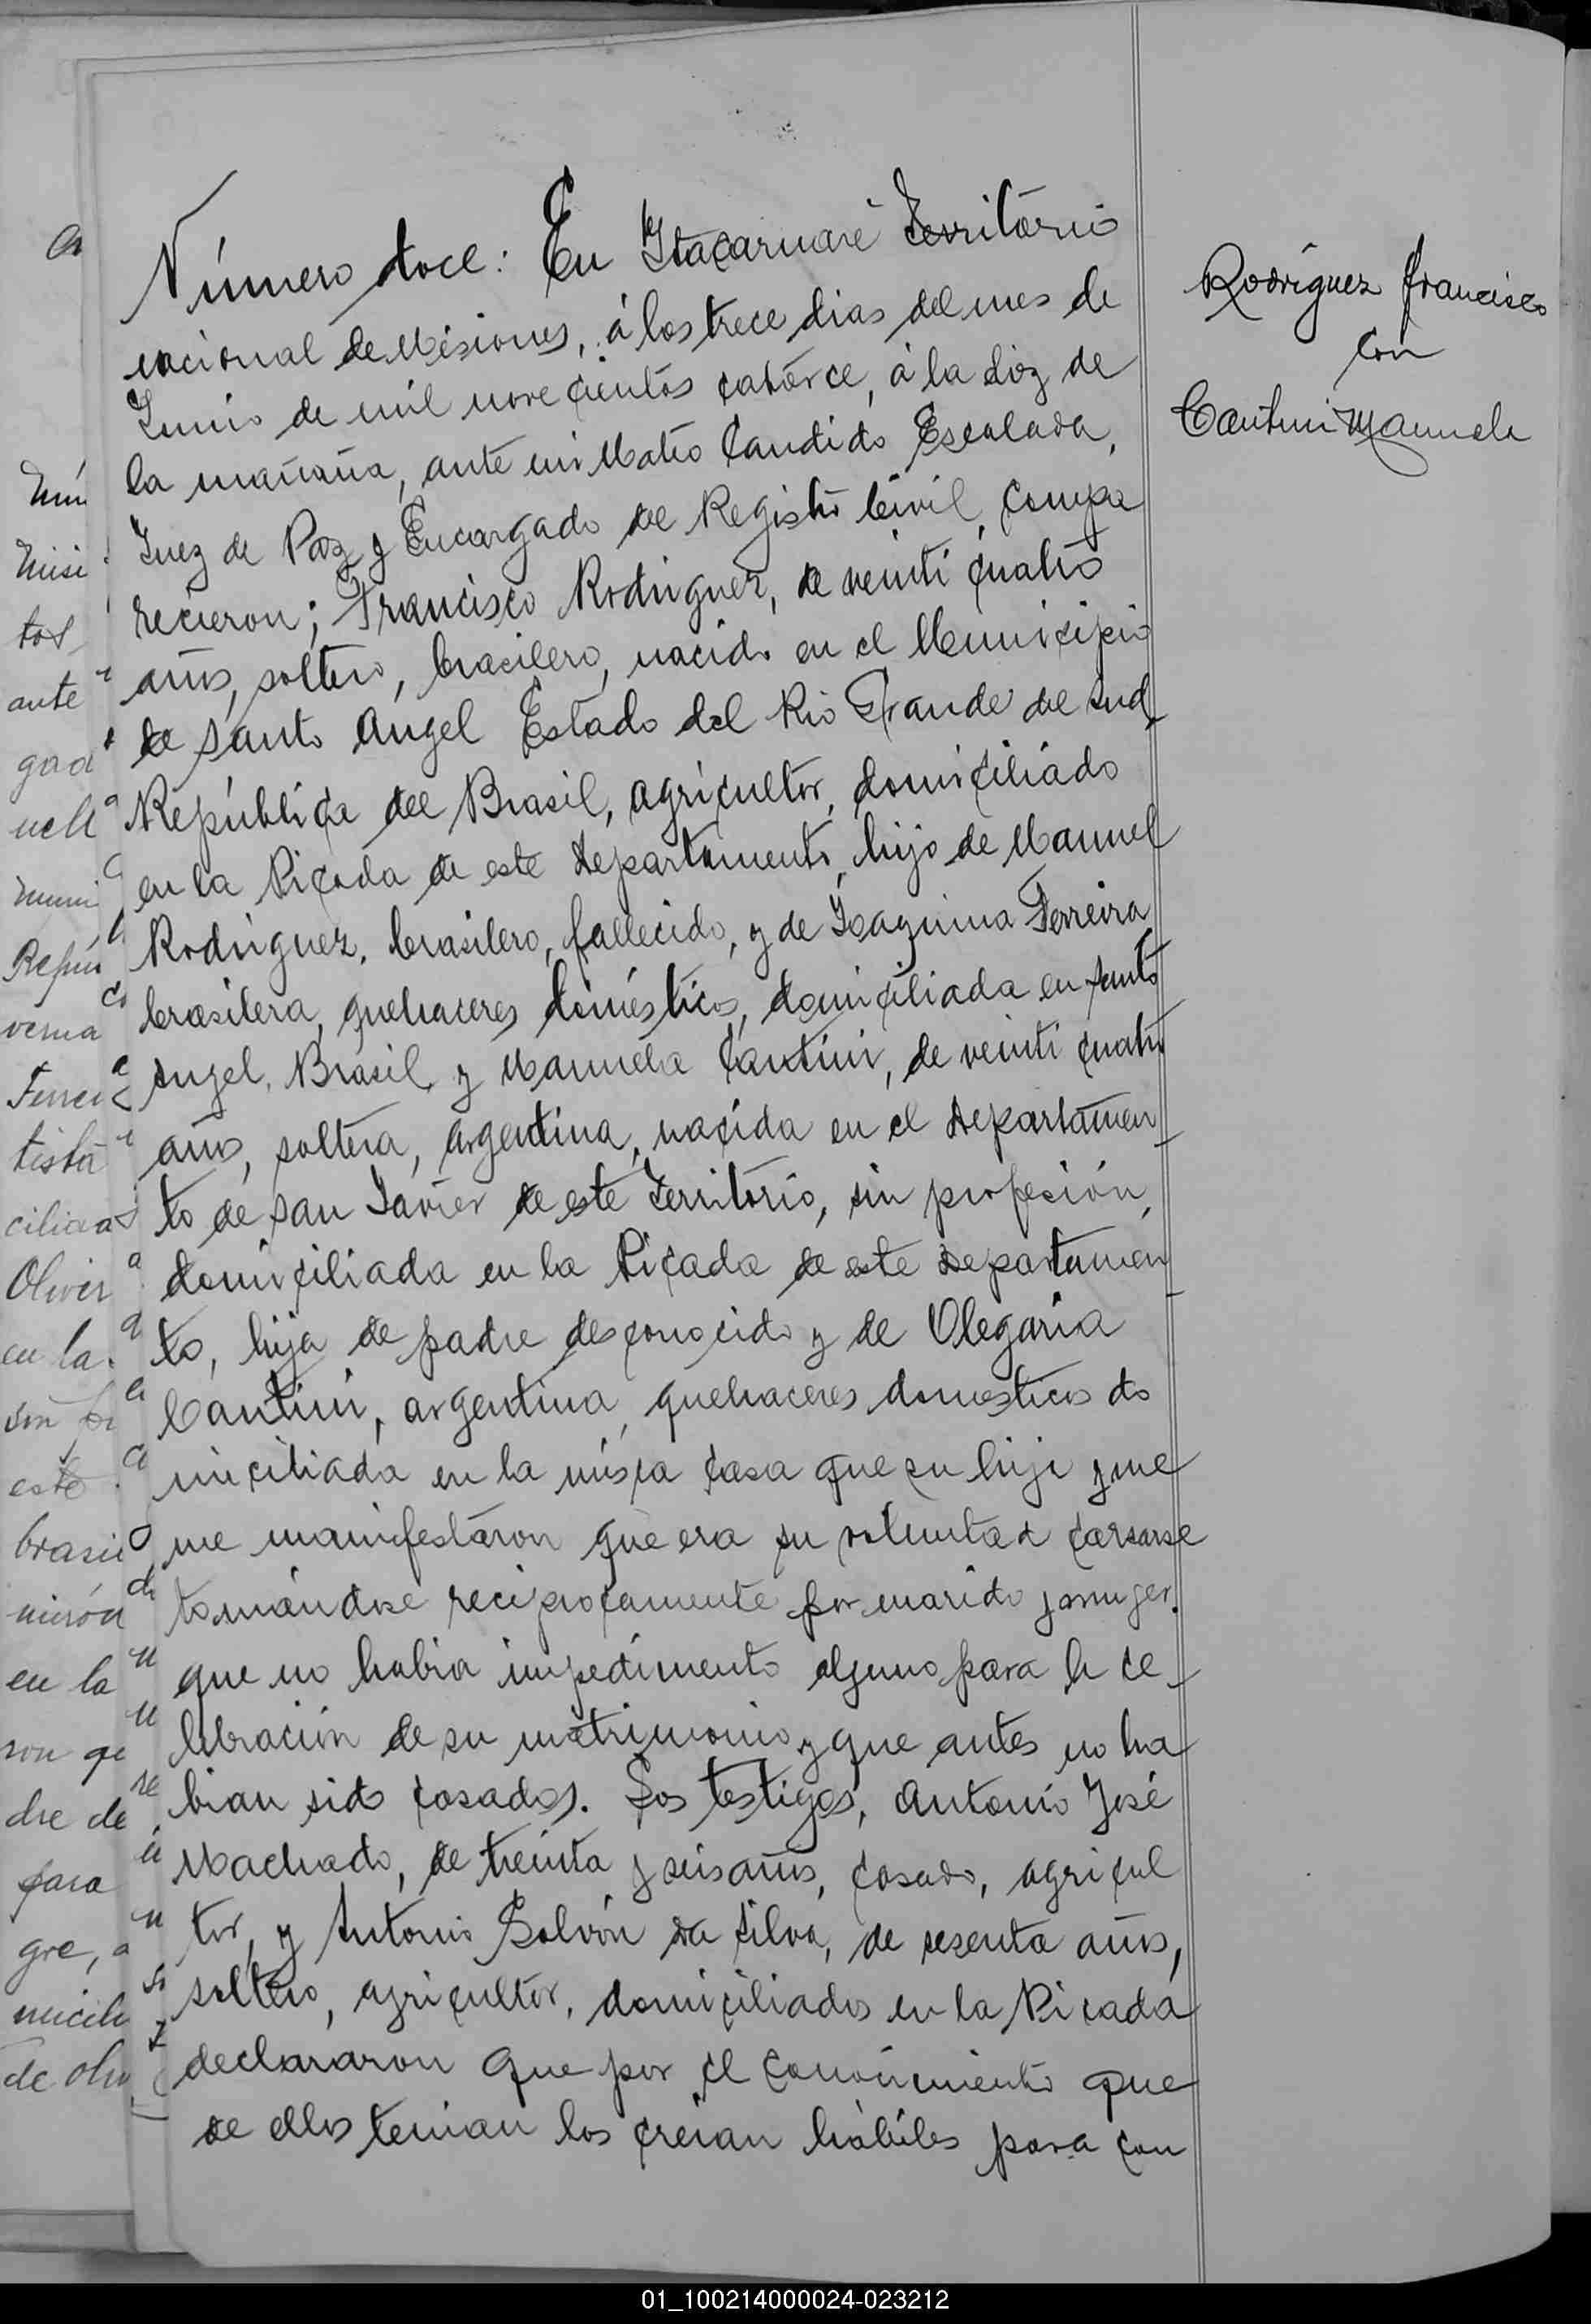 Número doce: En Itacaruaré Territorio
nacional de Misiones, á los trece dias del mes de
Junio de mil novecientos catorce, á la diez de
la mañana, ante mi Mateo Candido Escalada,
Juez de Paz y Encargado del Registro Civil, compa
recieron; Francisco Rodriguez, de veinti cuatro
años, soltero, brasilero, nacido en el Municipio
de Santo Angel Estado del Rio Grande del Sud,
República del Brasil, agricultor, domiciliado
en la Picada de este departamento, hijo de Manuel
Rodriguez, brasilero, fallecido, y de Joaquina Ferreira
brasilera, quehaceres domésticos, domiciliada en Santo
Angel, Brasil, y Manuela Cantini, de veinti cuatro
años, soltera, argentina, nacida en el departamen-
to de San Javier de este Territorio, sin profesión,
domiciliada en la Picada de este departamen-
to, hija de padre desconocido y de Olegaria
Cantini, argentina, quehaceres domesticos do
miciliada en la misma casa que su hija y me
me manifestaron que era su voluntad carsarse
tomándose reciprocamente por marido y muger,
que no habia impedimento alguno para la ce-
lebración de su matrimonio y que antes no ha
bian sido casados. Los testigos, Antonio José
Machado, de treinta y seis años, casado, agricul
tor, y Antonio da Silva, de sesenta años,
soltero, agricultor, domiciliados en la Picada
declararon que por el conocimiento que
de ellos tenian los creian hábiles para con
Rodriguez Francisco
con
Cantini Manuela
Núm
Misi
tos
ante
gad
nell
muni
Repú
verna
Ferrei
tista
ciliad
Oliver
en la
sin pr
este
brasil
en la
ron qu
dre de
para
gre, a
micili
de Oliv
01_100214000024-023212